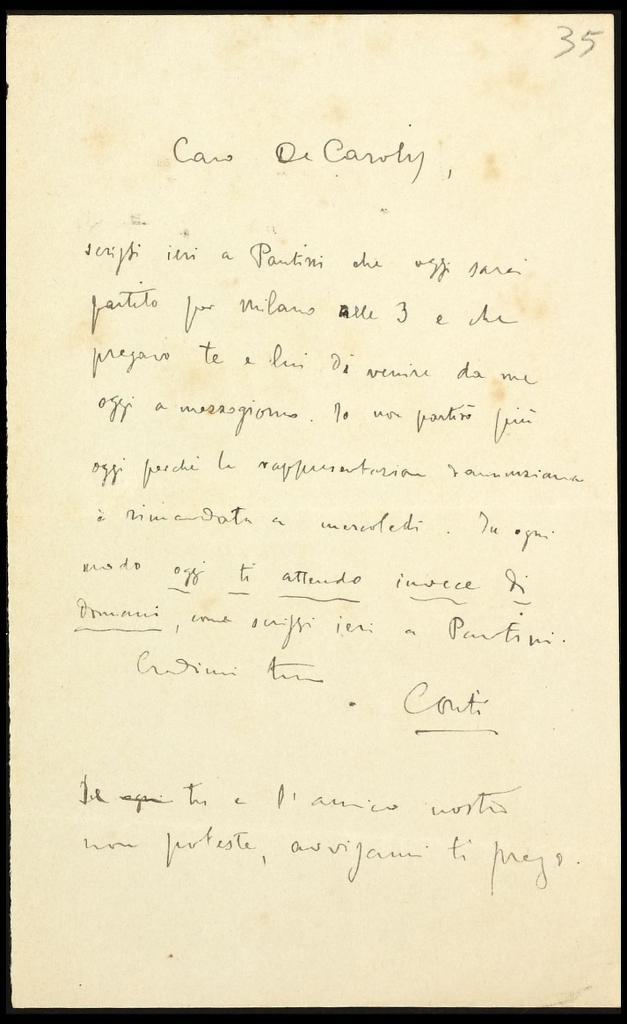 35
Caro De Carolis,
scrissi ieri a Pantini che oggi sarei
partito per Milano alle 3 e che
pregavo te e lui di venire da me
oggi a mezzogiorno. Io non partirò più
oggi perchè la rappresentazione dannunziana
è rimandata a mercoledì. In ogni
modo oggi ti attendo invece di
domani, come scrissi ieri a Pantini.
Credimi tuo
Conti
Se oggi tu e l'amico nostro
non poteste, avvisami ti prego.